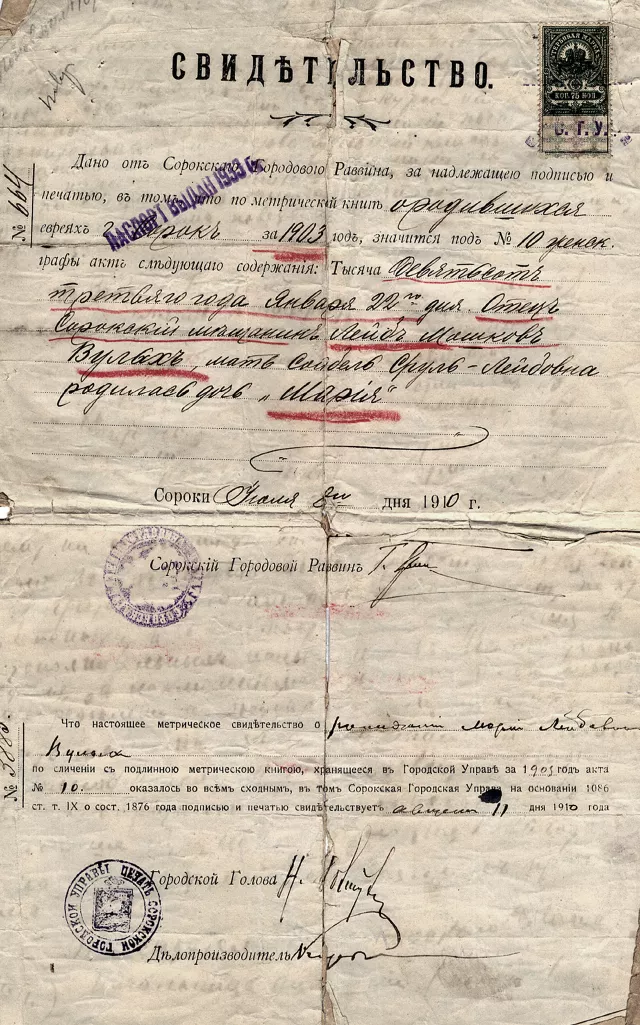 СВИДѢТЕЛЬСТВО.
КОП. 75 КОП.
С. Г. У.
№ 664
Дано отъ Сорокскаго Городового Раввина, за надлежащею подписью и
печатью, въ томъ, что по метрической книгѣ о родившихся
евреяхъ г. Сорокъ за 1903 годъ, значится подъ № 10 женск.
графы актъ слѣдующаго содержанія: Тысяча Девятьсотъ
третьяго года Января 22го дня. Отецъ
Сорокскій мѣщанинъ Лейбъ Мошковъ
Вульхъ, мать Сойбель Сруль-Лейбовна
родилась дочь „Марія“
ПАСПОРТ ВЫДАН 1933 г.
Сороки Іюля 8го дня 1910 г.
Сорокскій Городовой Раввинъ
Что настоящее метрическое свидѣтельство о рожденіи Маріи Лейбовны
Вульхъ
по сличеніи съ подлинною метрическою книгою, хранящееся въ Городской Управѣ за 1903 годъ акта
№ 10. оказалось во всѣмъ сходнымъ, въ томъ Сорокская Городская Управа на основаніи 1086
ст. т. IX о сост. 1876 года подписью и печатью свидѣтельствуетъ августа 11 дня 1910 года
Городской Голова
ПЕЧАТЬ СОРОКСКОЙ ГОРОДСКОЙ УПРАВЫ
Дѣлопроизводитель